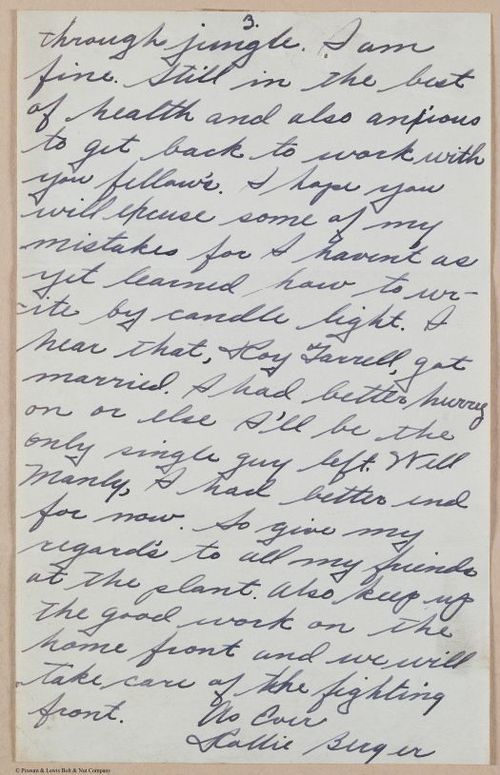 3.
through jungle. I am
fine. Still in the best
of health and also anxious
to get back to work with
you fellow's. I hope you
will excuse some of my
mistakes for I havent as
yet learned how to wr-
ite by candle light. I
hear that, Roy Farrell, got
married. I had better hurrey
on or else I'll be the
only single guy left. Well
Manly, I had better end
for now. So give my
regard's to all my friends
at the plant. Also keep up
the good work on the
home front and we will
take care of the fighting
front.
As Ever
Rollie Berger
© Pissom & Lewis Bolt & Nut Company